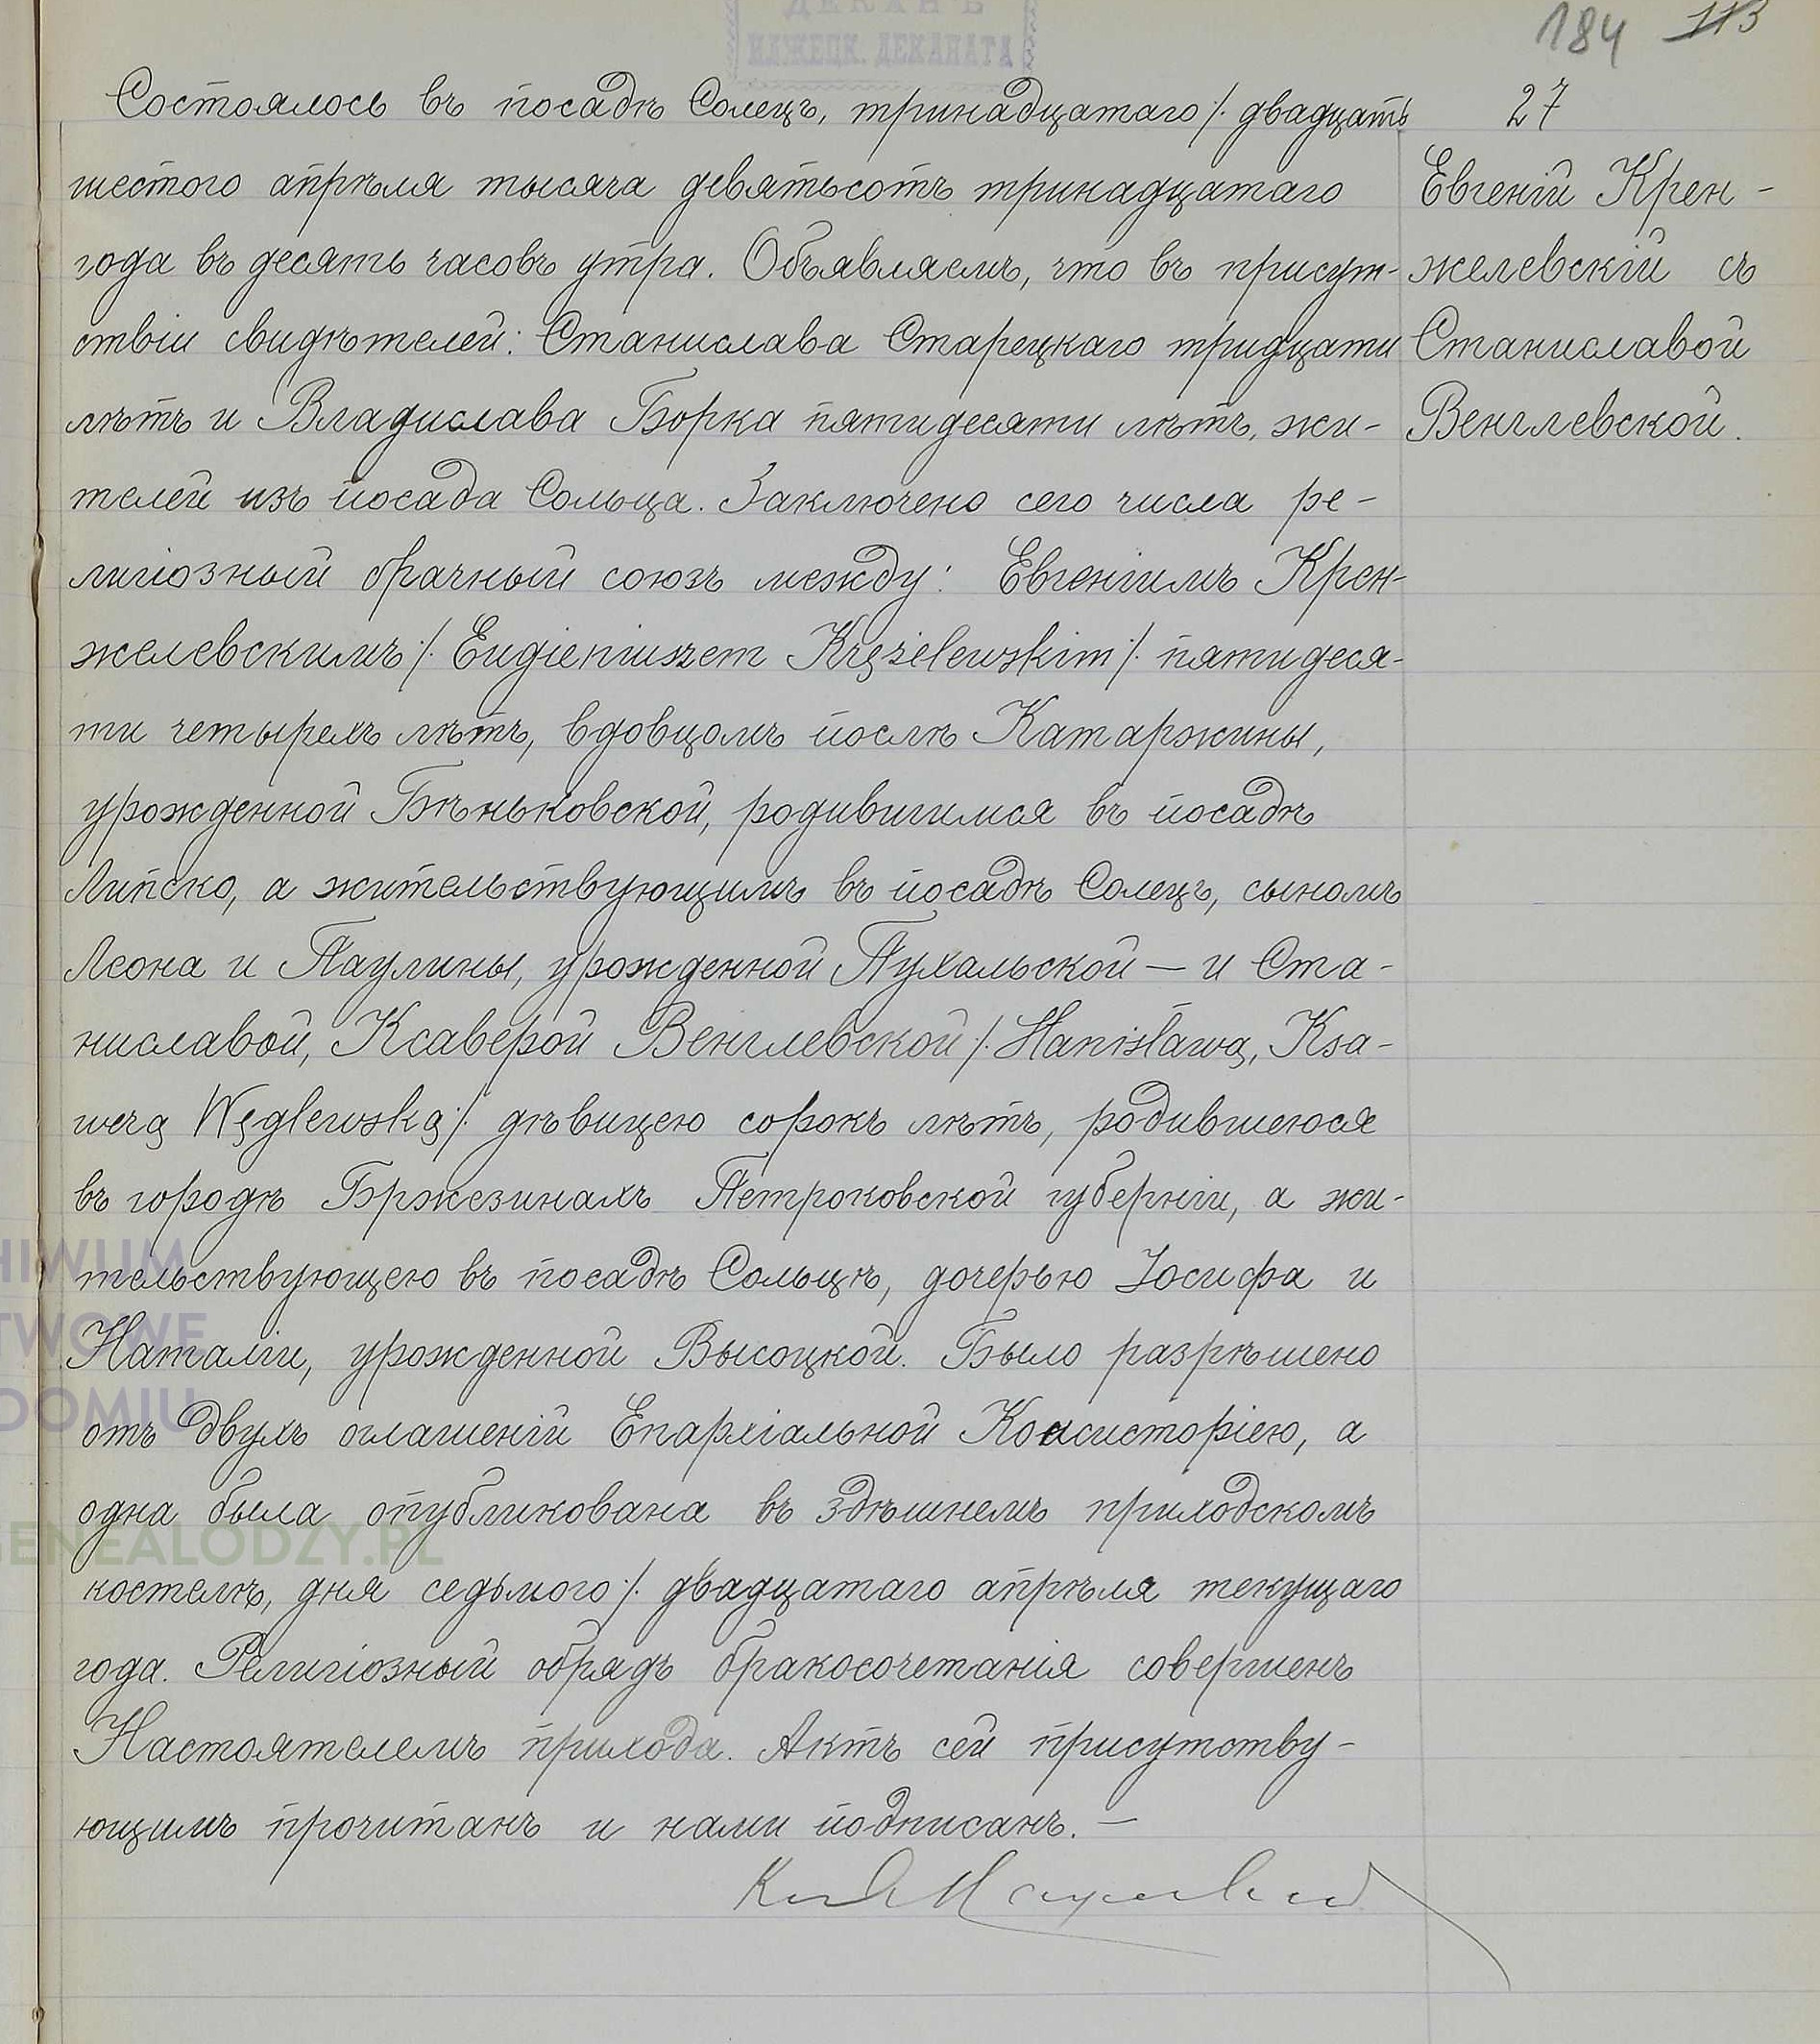 ДЕКАНЪ
ИЛЖЕЦК. ДЕКАНАТА
184 113
Состоялось въ посадѣ Солецъ, тринадцатаго /. двадцать
шестого апрѣля тысяча девятьсотъ тринадцатаго
года въ десять часовъ утра. Объявляемъ, что въ присут-
ствіи свидѣтелей: Станислава Старецкаго тридцати
лѣтъ и Владислава Борка пятидесяти лѣтъ, жи-
телей изъ посада Сольца. Заключено сего числа ре-
лигіозный брачный союзъ между: Евгеніимъ Крен-
желевскимъ /. Eugieniuszem Krężelewskim /. пятидеся-
ти четырехъ лѣтъ, вдовцомъ послѣ Катаржины,
урожденной Бѣньковской, родившимся въ посадѣ
Липско, а жительствующимъ въ посадѣ Солецъ, сыномъ
Леона и Паулины, урожденной Пухальской — и Ста-
ниславой, Ксаверой Венглевской /. Stanisławą, Ksa-
werą Węglewską /. дѣвицею сорокъ лѣтъ, родившеюся
въ городѣ Бржезинахъ Петроковской губерніи, а жи-
тельствующею въ посадѣ Сольцѣ, дочерью Іосифа и
Наталіи, урожденной Высоцкой. Было разрѣшено
отъ двухъ оглашеній Епархіальной Консисторіею, а
одна была опубликована въ здѣшнемъ приходскомъ
костелѣ, дня седьмого /. двадцатаго апрѣля текущаго
года. Религіозный обрядъ бракосочетанія совершенъ
Настоятелемъ прихода. Актъ сей присутству-
ющимъ прочитанъ и нами подписанъ. —
27
Евгеній Крен-
желевскій съ
Станиславой
Венглевской.
HIWUM
TWOWE
DOMIU
GENEALODZY.PL